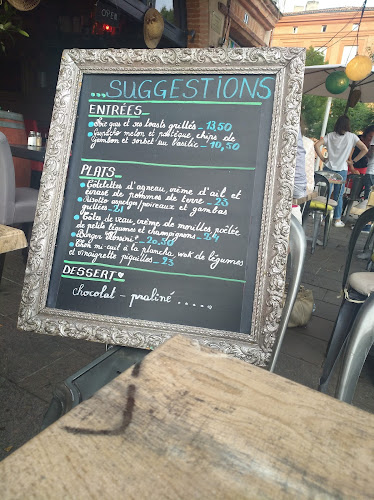 OPEN
...SUGGESTIONS
ENTRÉES
Foie gras et ses toasts grillés_ 13,50
Gaspacho melon et pastèque, chips de
jambon et sorbet au basilic_ 10,50
PLATS
Côtelettes d'agneau, crème d'ail et
écrasé de pommes de terre_ 23
Risotto asperges/poireaux et gambas
grillées_ 21
Côte de veau, crème de morilles poêlée
de petits légumes et champignons_ 24
Burger 20,50
Thon mi-cuit à la plancha, wok de légumes
et vinaigrette piquillos_ 23
DESSERT
chocolat - praliné .....